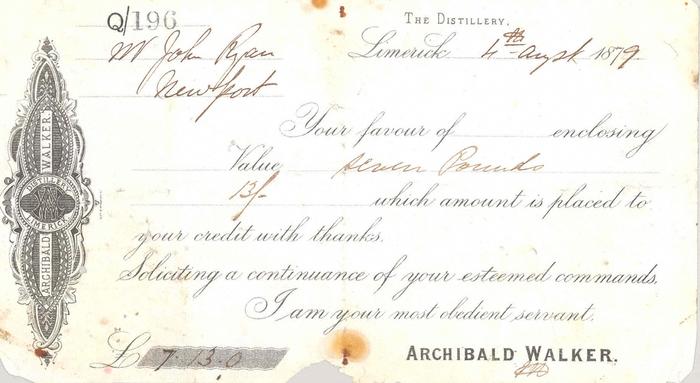 Q/196
THE DISTILLERY,
Mr John Ryan
Limerick 4th August 1879
Newport
Your favour of enclosing
Value seven Pounds
13/- which amount is placed to
your credit with thanks.
Soliciting a continuance of your esteemed commands,
I am your most obedient servant,
£ 7 13 0
ARCHIBALD WALKER.
ARCHIBALD WALKER.
DISTILLERY
LIMERICK